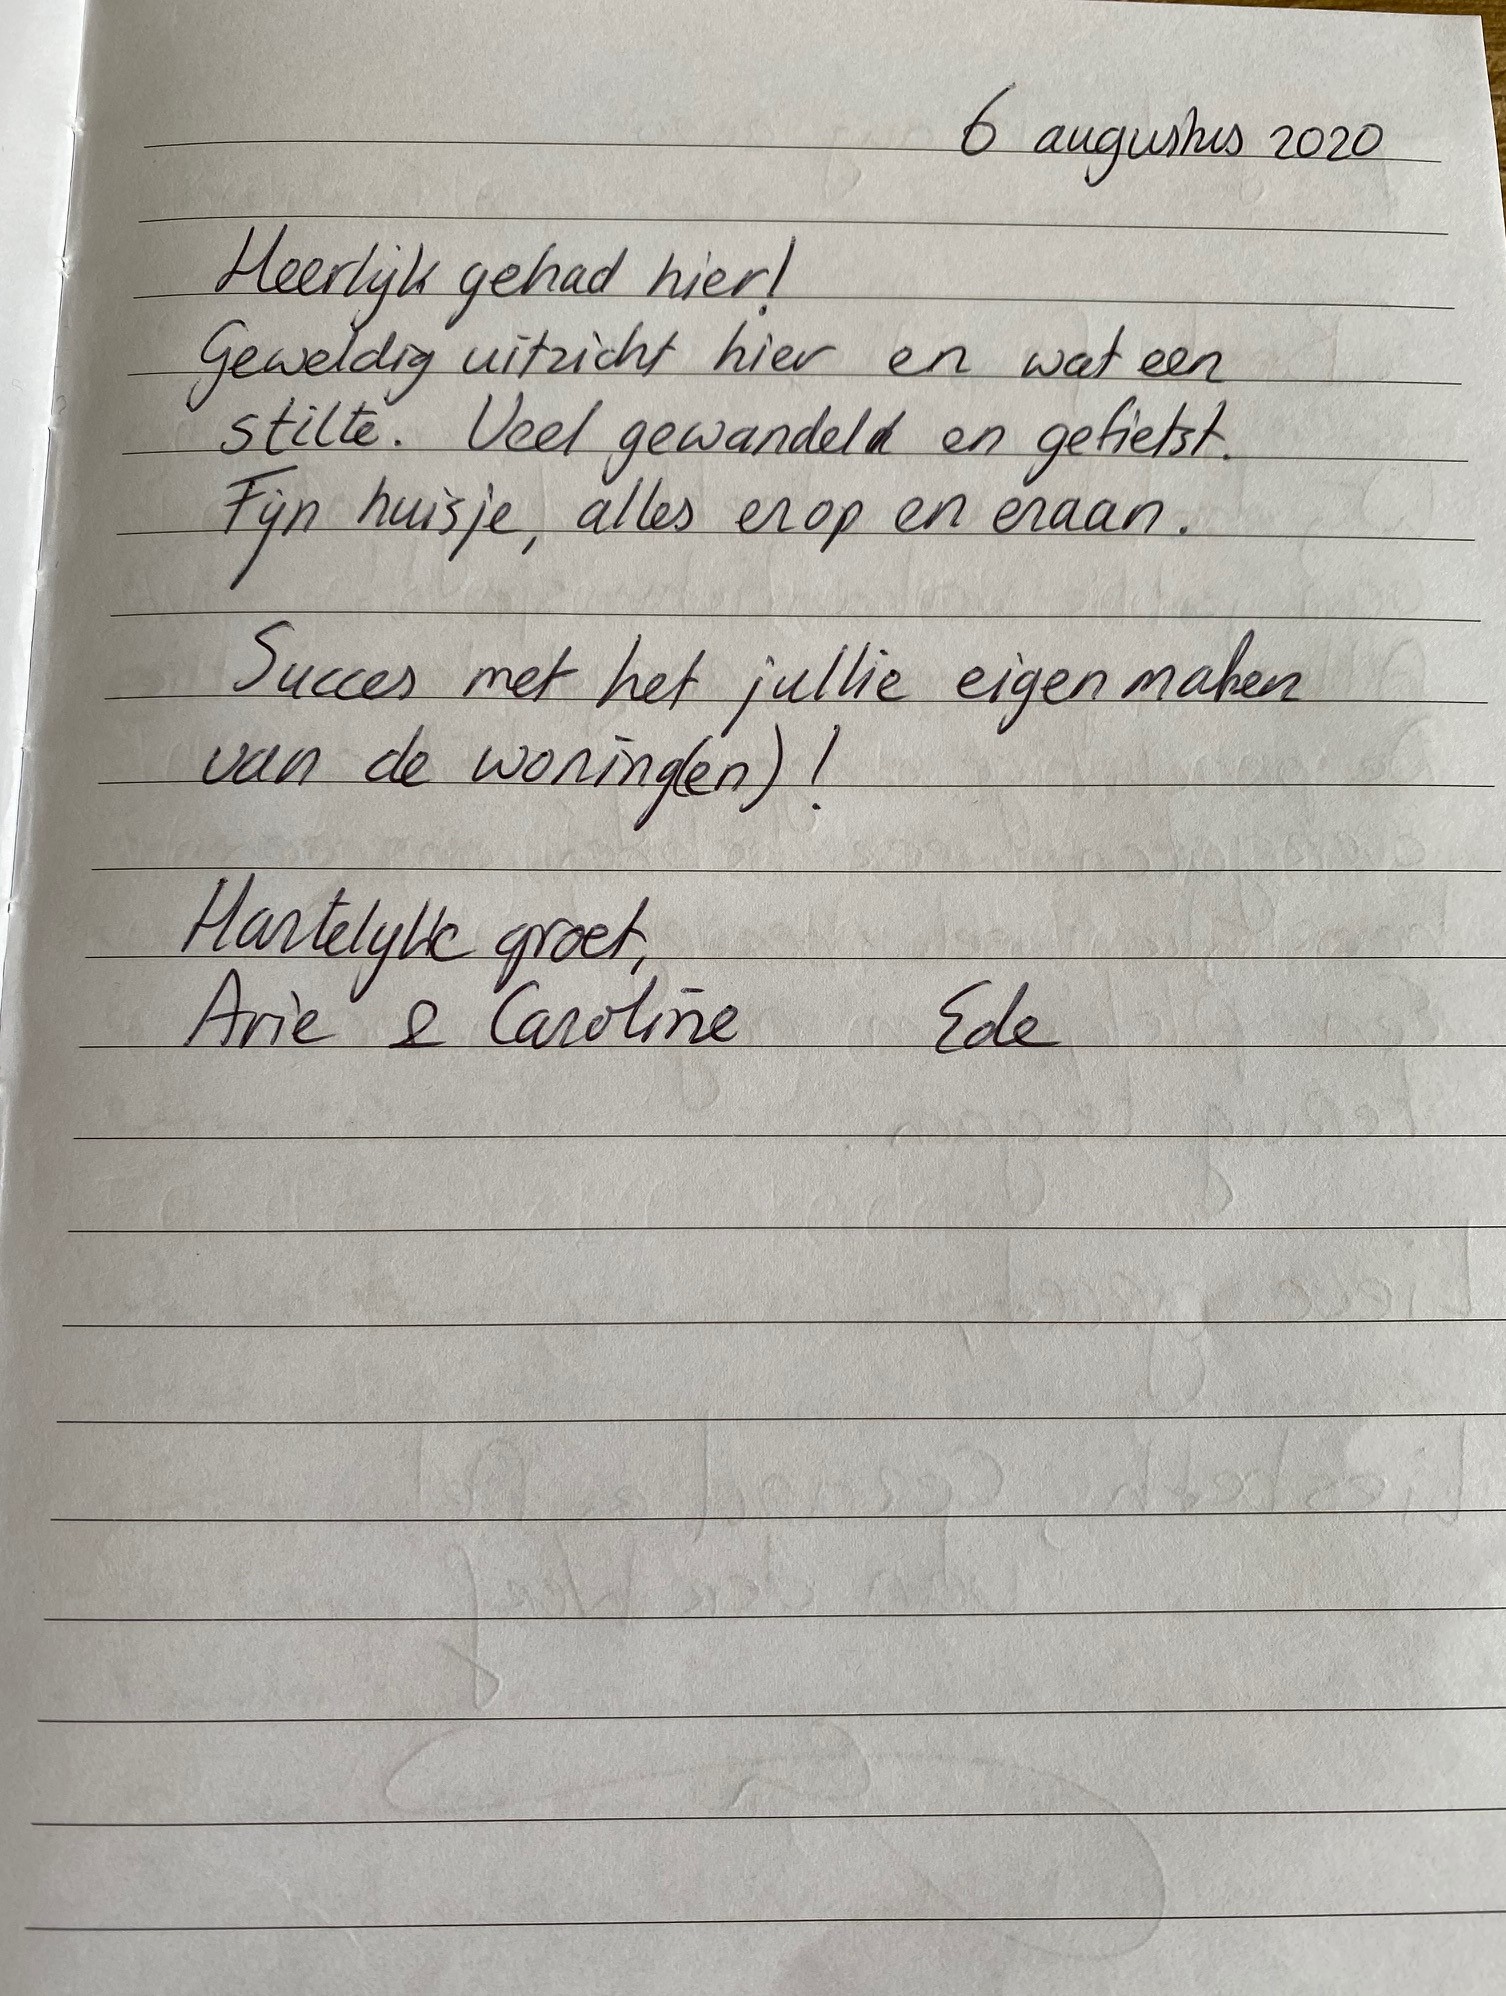 6 augustus 2020
Heerlijk gehad hier!
Geweldig uitzicht hier en wat een
stilte. Veel gewandeld en gefietst.
Fijn huisje, alles erop en eraan.
Succes met het jullie eigen maken
van de woning(en)!
Hartelijke groet,
Arie & Caroline Ede